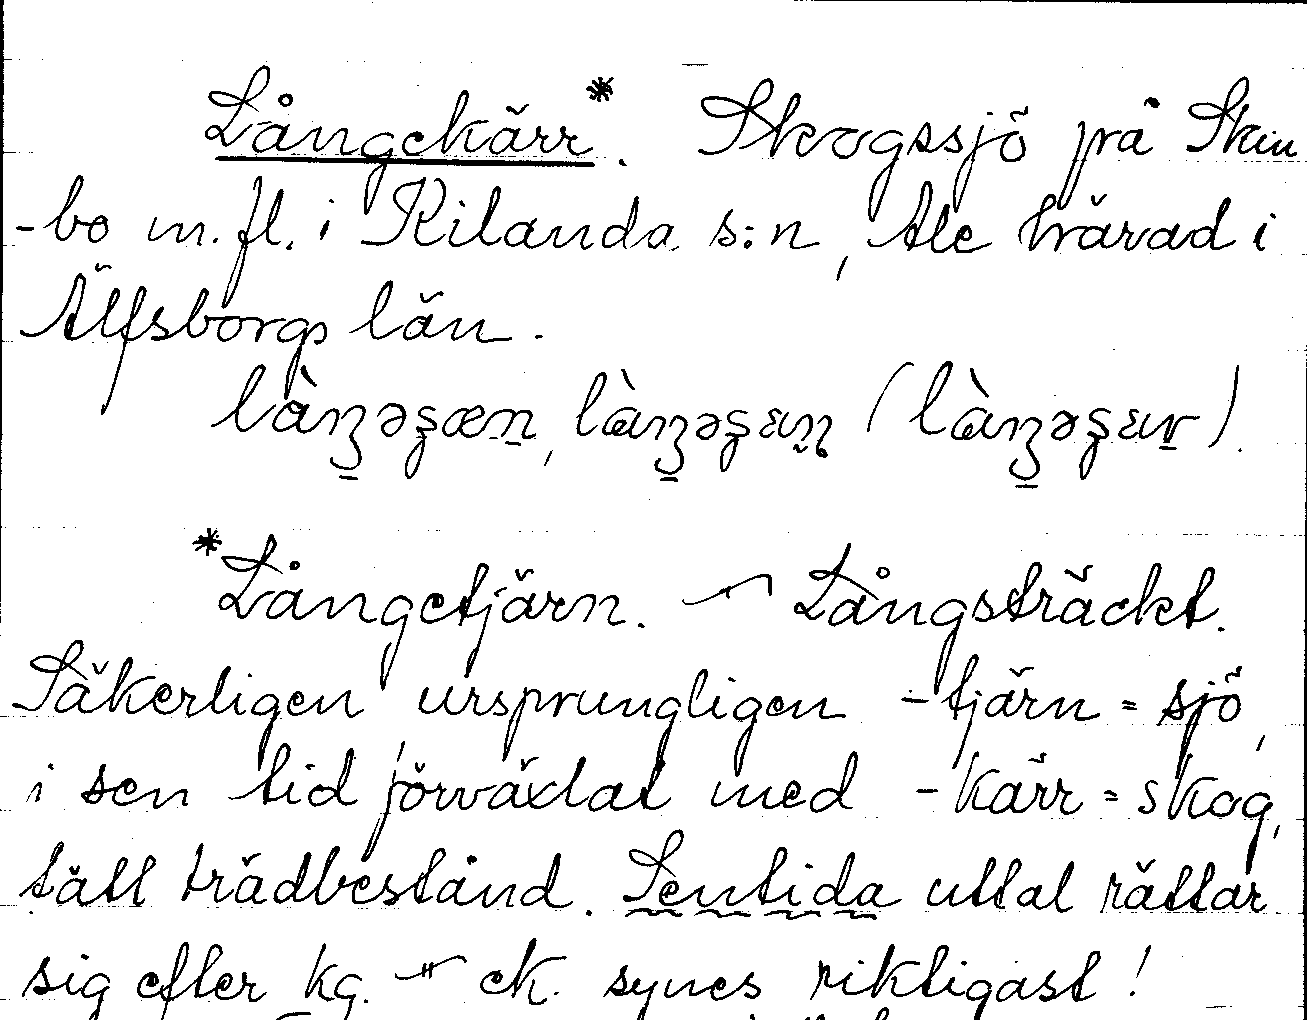 Långekärr*. Skogssjö på Skin
-bo m.fl. i Kilanda s:n, Ale härad i
Älfsborgs län.
*Långetjärn. Långsträckt.
Säkerligen ursprungligen -tjärn = sjö,
i sen tid förväxlat med -kärr = skog,
tätt trädbestånd. Sentida uttal rättar
sig efter kg. ek. synes riktigast!